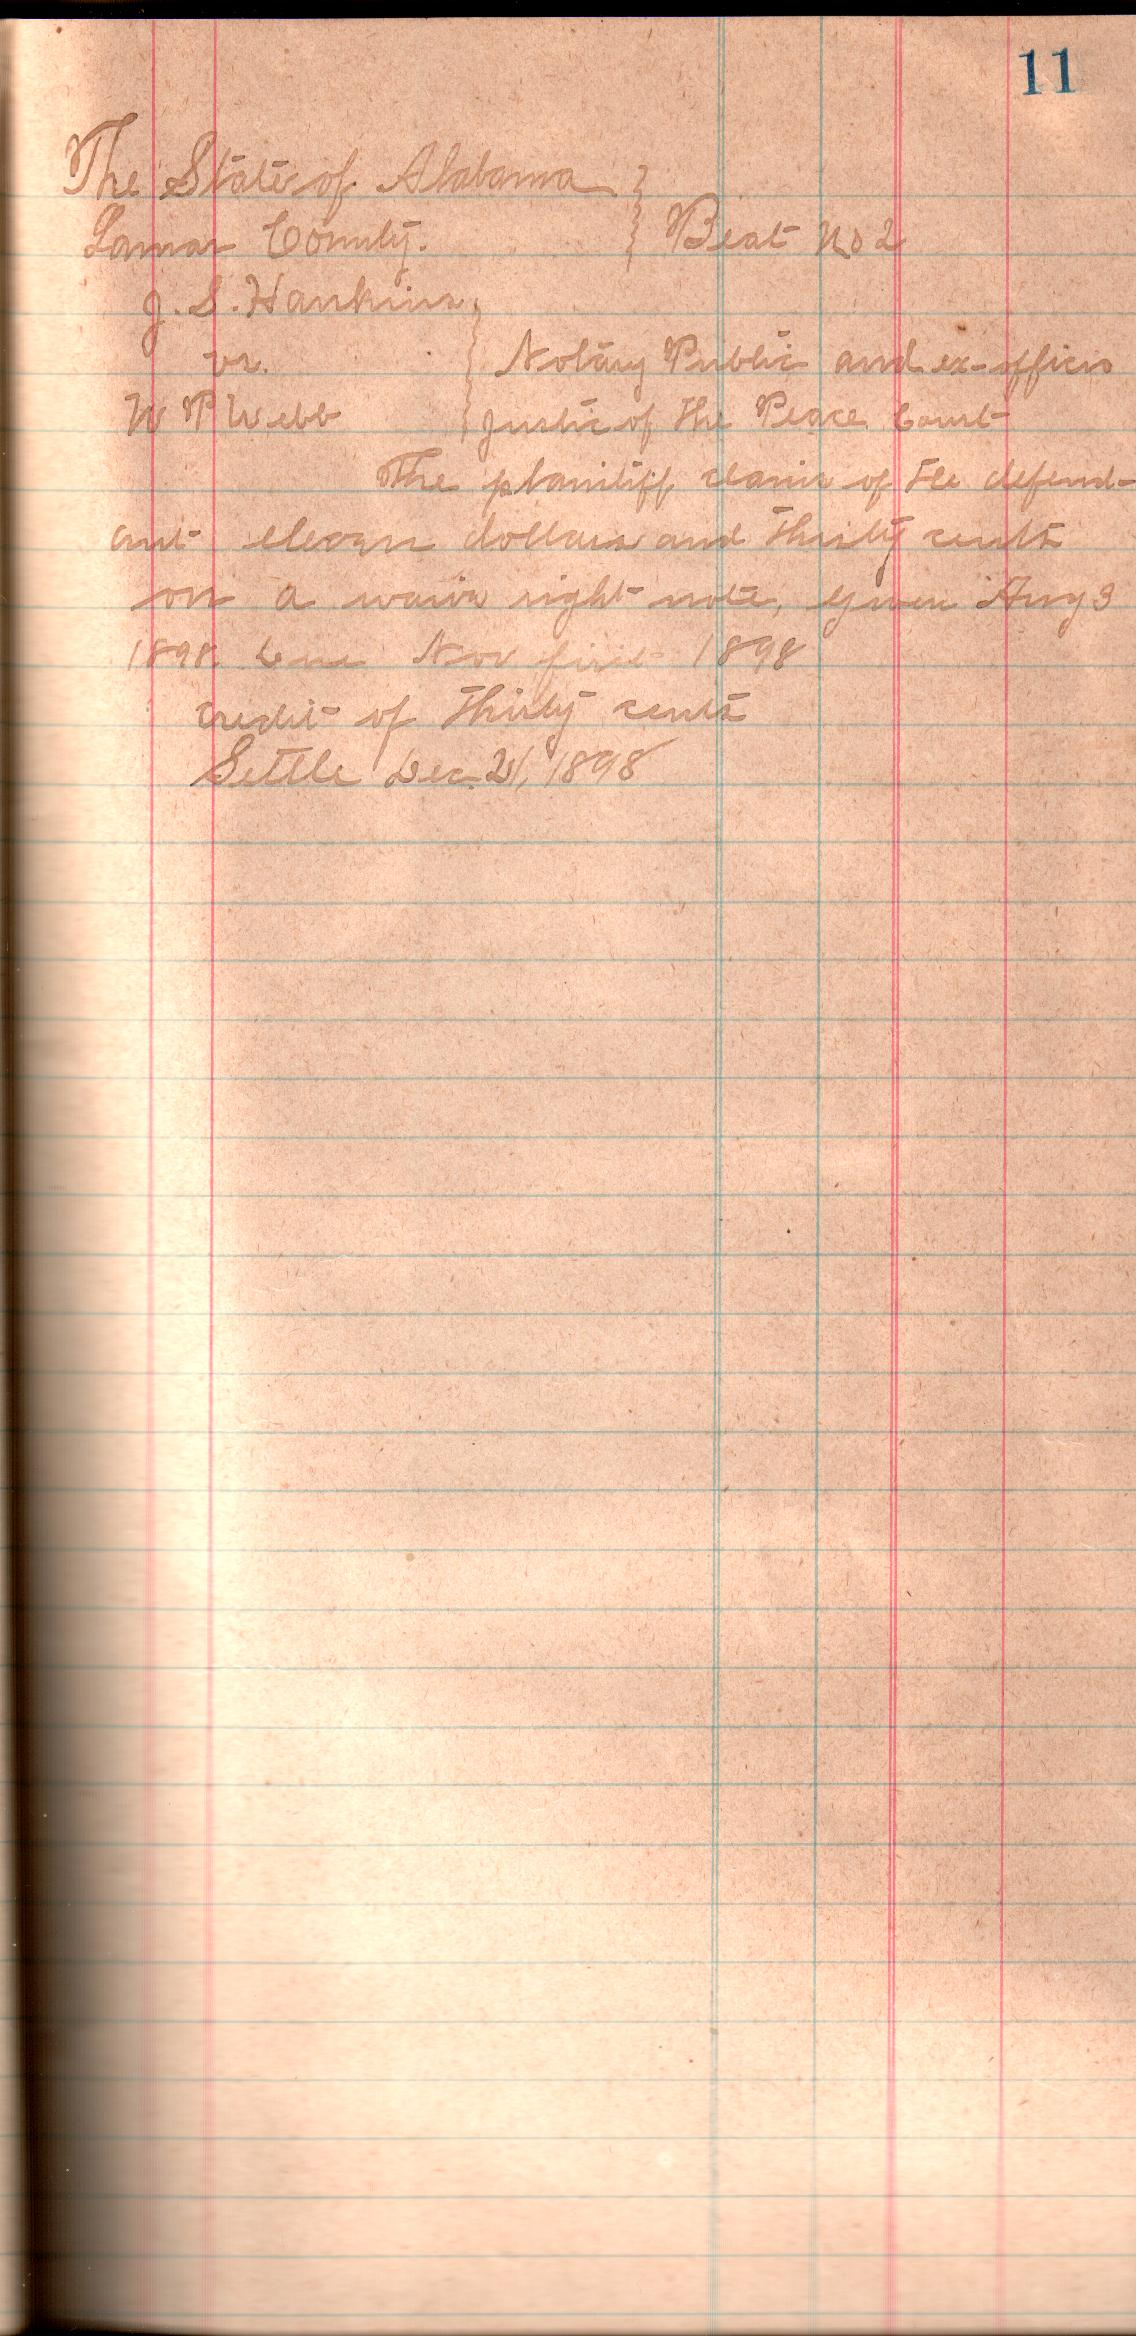 11
The State of Alabama }
Lamar County. } Beat No 2
J. S. Hankins }
vs. } Notary Public and ex-officio
W P Webb } Justic of the Peace Court
The plantiff claim of the defend-
ant eleven dollars and thirty cents
on a waive right note, given Aug 3
1898 due Nov first 1898
credit of thirty cents
Settle Dec 21, 1898